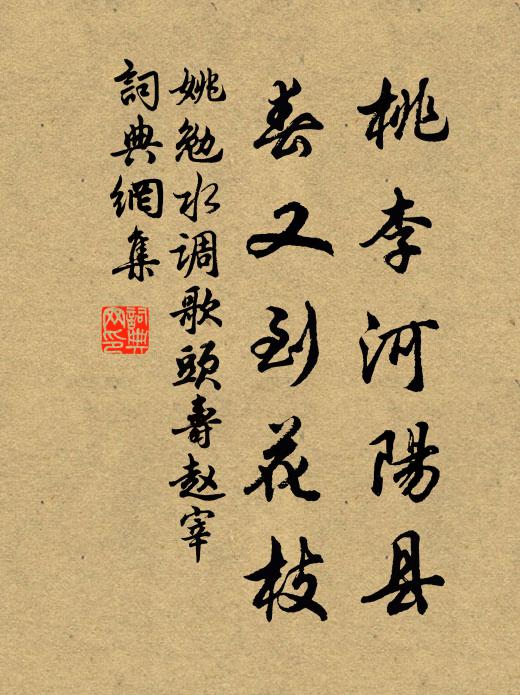 桃李河陽县
春又到花枝
姚勉水调歌頭壽赵宰
詞典網集
詞典
网印